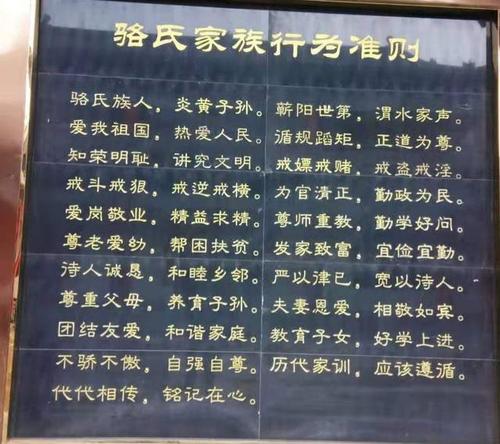 骆氏家族行为准则
骆氏族人，炎黄子孙。蕲阳世第，渭水家声。
爱我祖国，热爱人民。循规蹈矩，正道为尊。
知荣明耻，讲究文明。戒嫖戒赌，戒盗戒淫。
戒斗戒狠，戒逆戒横。为官清正，勤政为民。
爱岗敬业，精益求精。尊师重教，勤学好问。
尊老爱幼，帮困扶贫。发家致富，宜俭宜勤。
待人诚恳，和睦乡邻。严以律已，宽以待人。
尊重父母，养育子孙。夫妻恩爱，相敬如宾。
团结友爱，和谐家庭。教育子女，好学上进。
不骄不傲，自强自尊。历代家训，应该遵循。
代代相传，铭记在心。